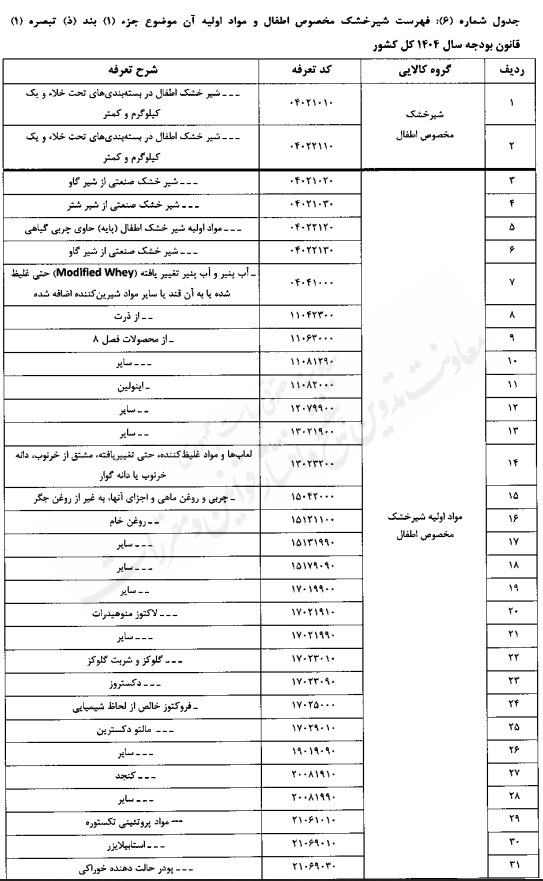 جدول شماره (۶): فهرست شیرخشک مخصوص اطفال و مواد اولیه آن موضوع جزء (۱) بند (ذ) تبصره (۱)
قانون بودجه سال ۱۴۰۴ کل کشور
ردیف گروه کالایی کد تعرفه شرح تعرفه
شیرخشک
مخصوص اطفال
۱ ۰۴۰۲۱۰۱۰ ـ ـ ـ شیر خشک اطفال در بسته‌بندی‌های تحت خلاء و یک
کیلوگرم و کمتر
۲ ۰۴۰۲۲۱۱۰ ـ ـ ـ شیر خشک اطفال در بسته‌بندی‌های تحت خلاء و یک
کیلوگرم و کمتر
مواد اولیه شیرخشک
مخصوص اطفال
۳ ۰۴۰۲۱۰۲۰ ـ ـ ـ شیر خشک صنعتی از شیر گاو
۴ ۰۴۰۲۱۰۳۰ ـ ـ ـ شیر خشک صنعتی از شیر شتر
۵ ۰۴۰۲۲۱۲۰ ـ ـ ـ مواد اولیه شیر خشک اطفال (پایه) حاوی چربی گیاهی
۶ ۰۴۰۲۲۱۳۰ ـ ـ ـ شیر خشک صنعتی از شیر گاو
۷ ۰۴۰۴۱۰۰۰ ـ آب پنیر و آب پنیر تغییر یافته (Modified Whey) حتی غلیظ
شده یا به آن قند یا سایر مواد شیرین‌کننده اضافه شده
۸ ۱۱۰۴۲۳۰۰ ـ ـ از ذرت
۹ ۱۱۰۶۳۰۰۰ ـ از محصولات فصل ۸
۱۰ ۱۱۰۸۱۲۹۰ ـ ـ ـ سایر
۱۱ ۱۱۰۸۲۰۰۰ ـ اینولین
۱۲ ۱۲۰۷۹۹۰۰ ـ ـ سایر
۱۳ ۱۳۰۲۱۹۰۰ ـ ـ سایر
۱۴ ۱۳۰۲۳۲۰۰ لعاب‌ها و مواد غلیظ‌کننده، حتی تغییریافته، مشتق از خرنوب، دانه
خرنوب یا دانه گوار
۱۵ ۱۵۰۴۲۰۰۰ ـ چربی و روغن ماهی و اجزای آنها، به غیر از روغن جگر
۱۶ ۱۵۱۲۱۱۰۰ ـ ـ روغن خام
۱۷ ۱۵۱۳۱۹۹۰ ـ ـ ـ سایر
۱۸ ۱۵۱۷۹۰۹۰ ـ ـ ـ سایر
۱۹ ۱۷۰۱۹۹۰۰ ـ ـ سایر
۲۰ ۱۷۰۲۱۹۱۰ ـ ـ ـ لاکتوز منوهیدرات
۲۱ ۱۷۰۲۱۹۹۰ ـ ـ ـ سایر
۲۲ ۱۷۰۲۳۰۱۰ ـ ـ ـ گلوکز و شربت گلوکز
۲۳ ۱۷۰۲۳۰۹۰ ـ ـ ـ دکستروز
۲۴ ۱۷۰۲۵۰۰۰ ـ فروکتوز خالص از لحاظ شیمیایی
۲۵ ۱۷۰۲۹۰۱۰ ـ ـ ـ مالتو دکسترین
۲۶ ۱۹۰۱۹۰۹۰ ـ ـ ـ سایر
۲۷ ۲۰۰۸۱۹۱۰ ـ ـ ـ کنجد
۲۸ ۲۰۰۸۱۹۹۰ ـ ـ ـ سایر
۲۹ ۲۱۰۶۱۰۱۰ --- مواد پروتئینی تکستوره
۳۰ ۲۱۰۶۹۰۱۰ ـ ـ ـ استابیلایزر
۳۱ ۲۱۰۶۹۰۳۰ ـ ـ ـ پودر حالت دهنده خوراکی